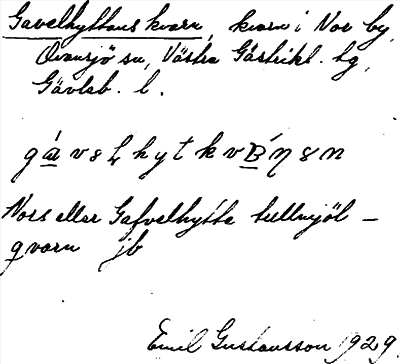 Gavelhyttans kvarn, kvarn i Nor by,
Ovansjö sn, Västra Gästrikl. hg,
Gävleb. l.
Nors eller Gafvelhytte tullmjöl-
qvarn jb
Emil Gustavsson 1929.